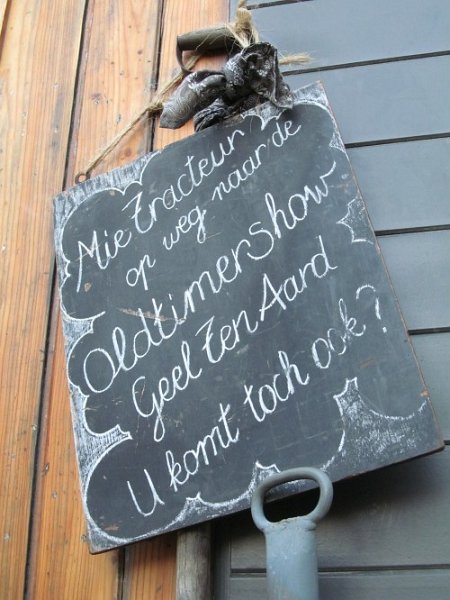 Mie Tracteur
op weg naar de
Oldtimershow
Geel Ten Aard
U komt toch ook?